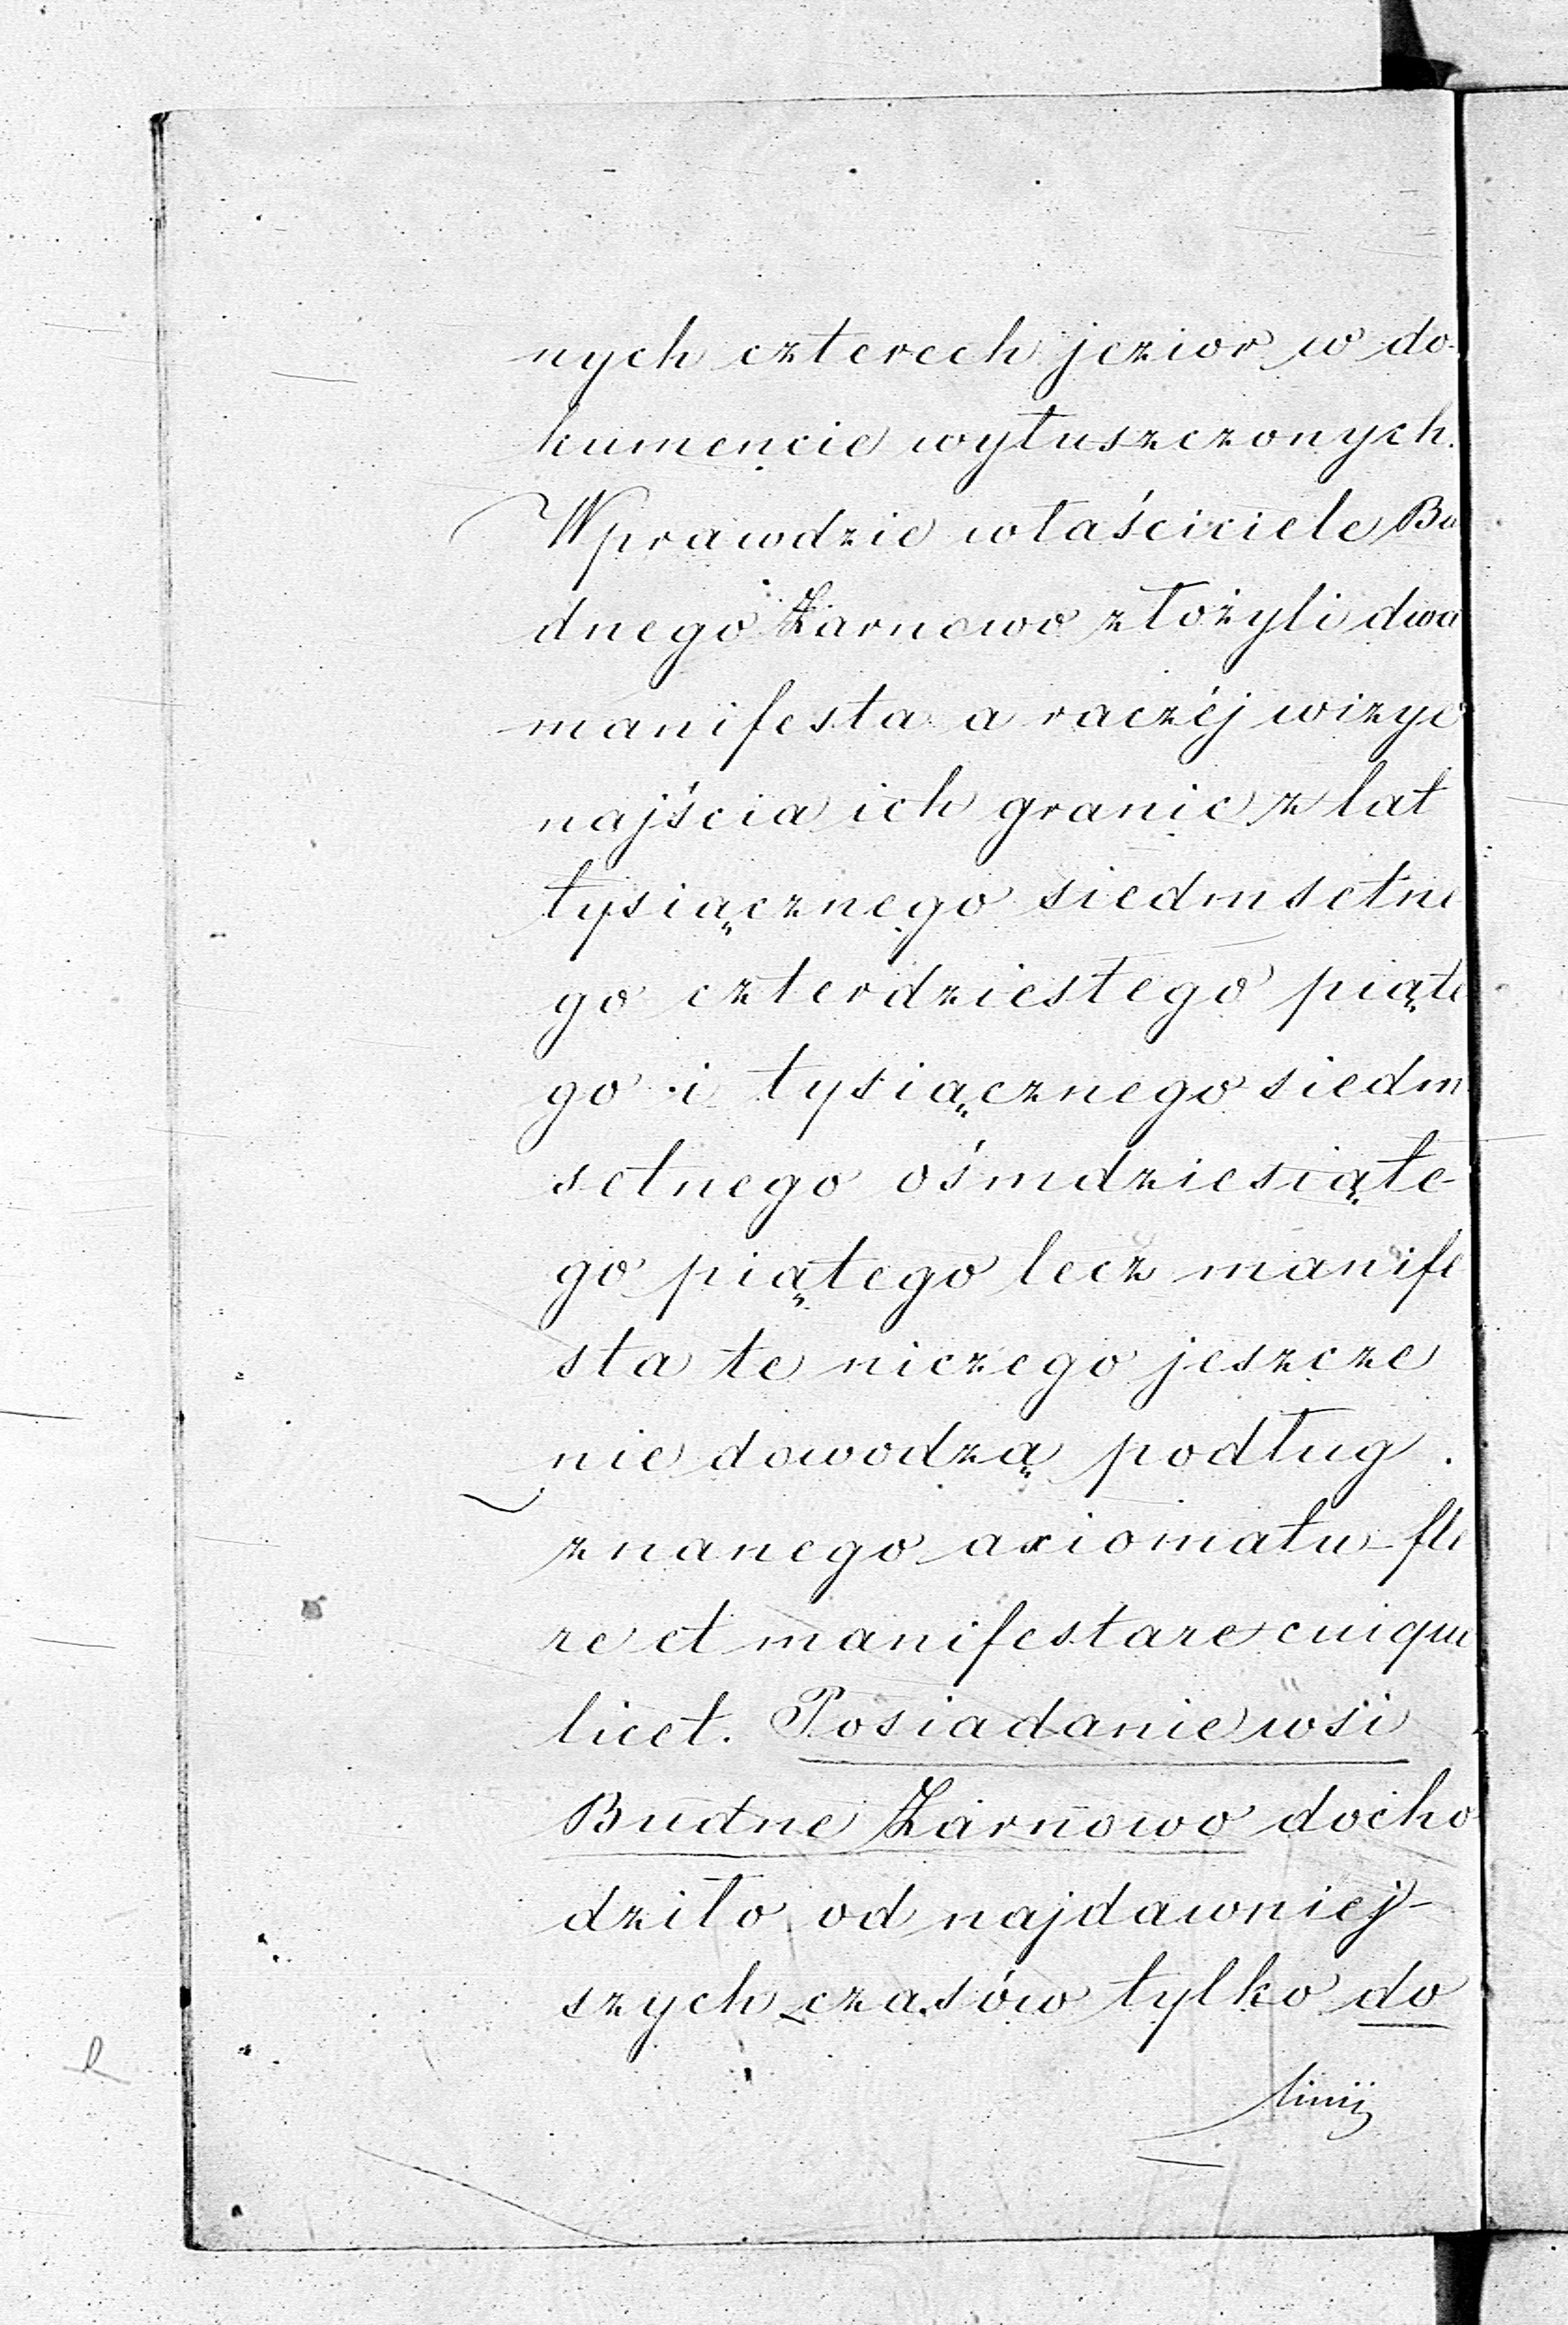 nych czterech jezior w do-
kumencie wyłuszczonych.
Wprawdzie właściciele Bu
dnego Żarnowo złożyli dwa
manifesta a raczéj wizye
najścia ich granic z lat
tysiącznego siedmsetne
go czterdziestego piąte
go i tysiącznego siedm
setnego ośmdziesiąte-
go piątego lecz manife
sta te niczego jeszcze
nie dowodzą podług
znanego axiomatu fle
re et manifestare cuique
licet. Posiadanie wsi
Budne Żarnowo docho
dziło od najdawniej-
szych czasów tylko do
linij